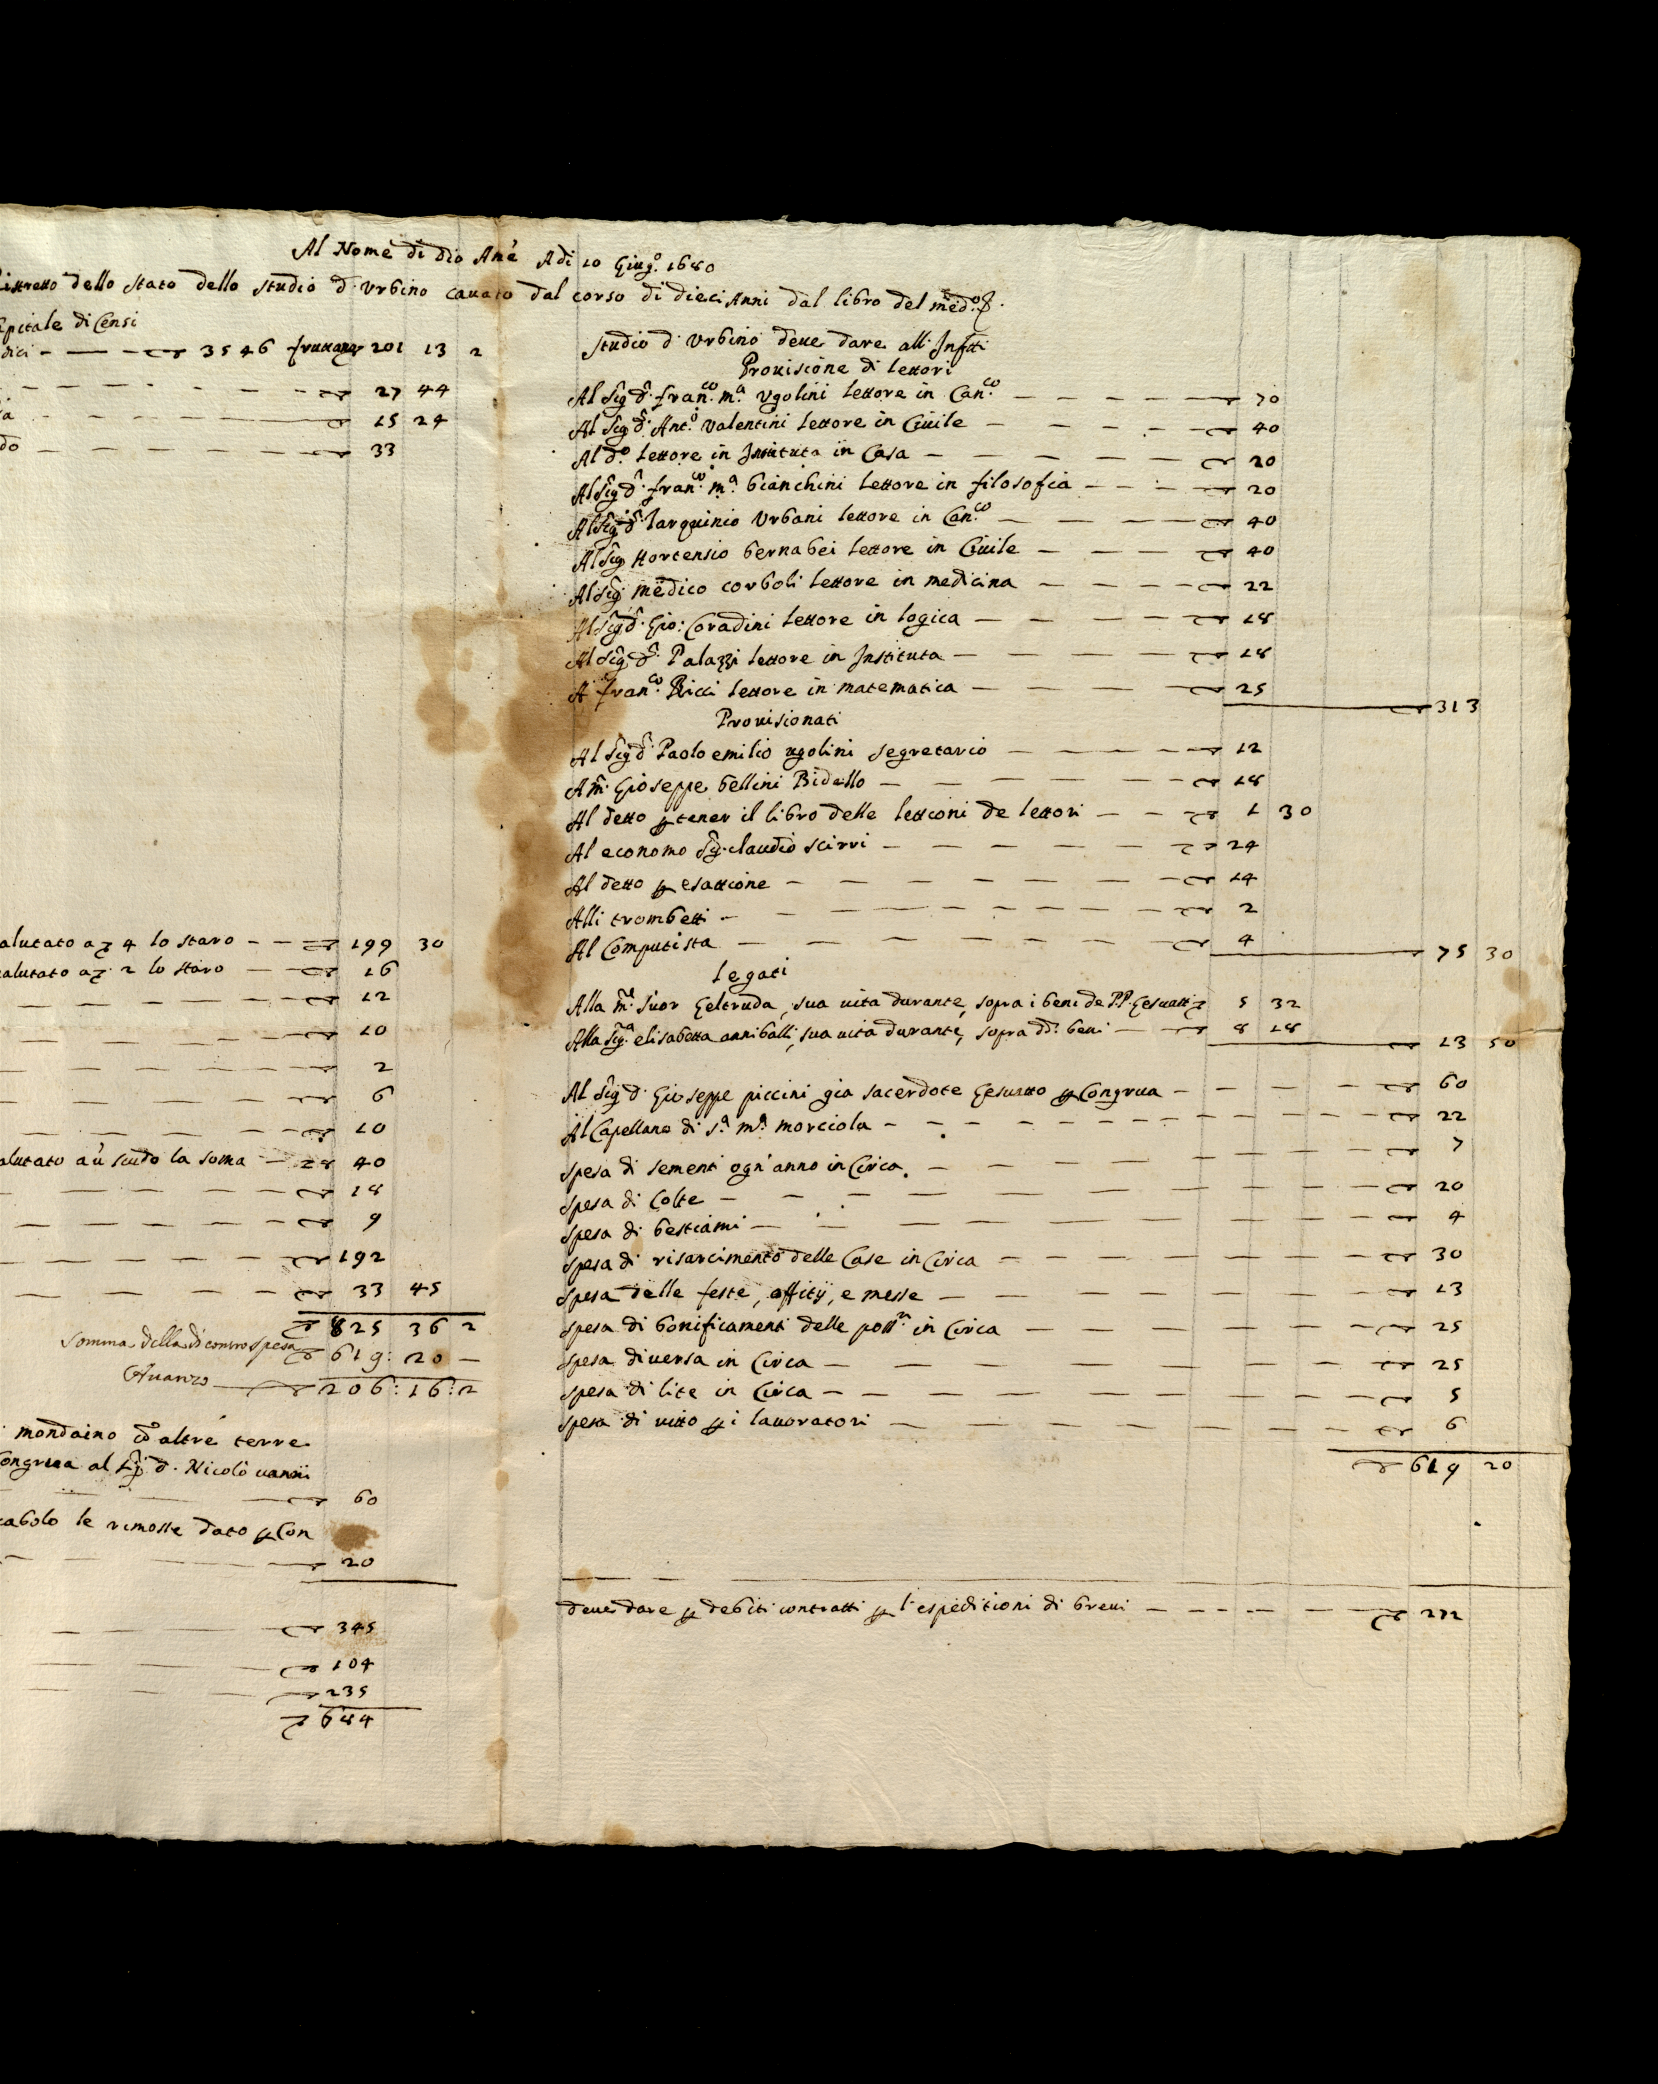 Al Nome di Dio Ame Adi 10 Giug.o 1680
istretto dello Stato dello Studio d'Urbino cauato dal corso di dieci Anni dal libro del med.o
apitale di Censi
dici 3546 fruttano 201 13 2
27 44
15 24
do 33
alutato a 4 lo staro 199 30
alutato a 2 lo staro 16
12
10
2
6
10
alutato a ú scudo la soma 40
18
9
192
33 45
825 36 2
Somma della di contro spesa 619: 20 —
Auanzo 206: 16: 2
mondaino co altre terre
ongrua al Sig. d. Nicolò uanni
60
cabolo le rimosse dato p Con
20
345
104
235
684
Studio d'Urbino deue dare all' Infr.tti
Prouisione di lettori
Al Sig. D. fran.co m.a Vgolini lettore in Can.co 70
Al Sig. D. Ant.o Valentini lettore in Ciuile 40
Al d.o lettore in Instituta in Casa 20
Al Sig. D. fran.co m.a bianchini lettore in filosofia 20
Al Sig. D. Tarquinio Vrbani lettore in Can.co 40
Al Sig. Hortensio bernabei lettore in Ciuile 40
Al Sig. medico corboli lettore in medicina 22
Al Sig. D. Gio: Coradini lettore in logica 18
Al Sig. D. Palazzi lettore in Instituta 18
A fran.co Ricci lettore in matematica 25
313
Prouisionati
Al Sig. D. Paolo emilio ugolini segretario 12
A m. Gioseppe bellini Bidello 18
Al detto p tener il libro delle lettioni de lettori 1 30
Al economo Sig. claudio scirri 24
Al detto p esattione 14
Alli trombetti 2
Al Computista 4
75 30
legati
Alla m.e Suor Geltruda, sua uita durante, sopra i beni de P.P. Gesuatti 5 32
Alla Sig.a elisabetta anniballi, sua uita durante, sopra dd. beni 8 18
13 50
Al Sig. d. Gioseppe piccini gia sacerdote Gesuatto p Congrua 60
Al Capellano di S.a m.a morciola 22
spesa di sementi ogn'anno in Circa 7
spesa di Colte 20
spesa di bestiami 4
spesa di risarcimento delle Case in Circa 30
spesa delle feste, offitÿ, e messe 13
spesa di bonificamenti delle poss.ni in Circa 25
spesa diuersa in Circa 25
spesa di lite in Circa 5
spesa di uitto p i lauoratori 6
619 20
deue dare p debiti contratti p l'espeditioni di breui 272